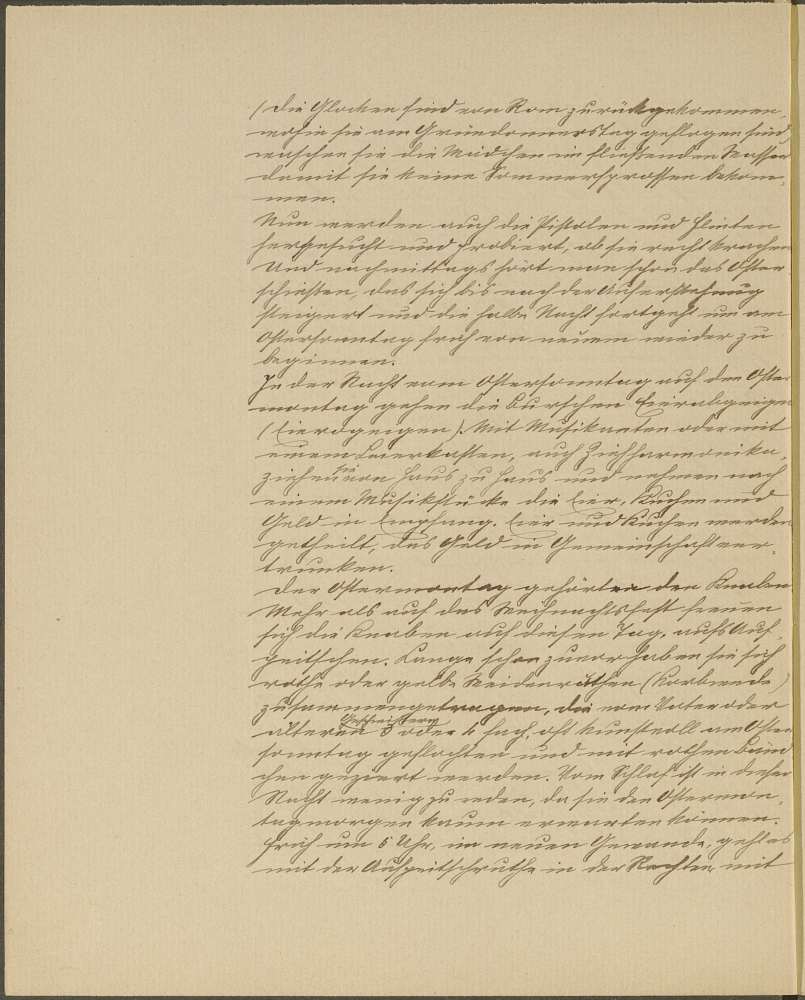 (Die Glocken sind von Rom zurückgekommen,
wohin sie am Gründonnerstag geflogen sind)
waschen sie die Mädchen im fließenden Wasser
damit sie keine Sommersprossen bekom-
men.
Nun werden auch die Pistolen und Flinten
hergesucht und probiert, ob sie recht krachen
Und nachmittags hört man schon das Oster-
schießen, das sich bis nach der Auferstehung
steigert und die halbe Nacht fortgeht um am
Ostersonntag früh von neuem wieder zu
beginnen.
In der Nacht vom Ostersonntag auf den Oster
montag gehen die Burschen Eierabgeigen
(Eierogeigen). Mit Musikanten oder mit
einem Leierkasten, auch Ziehharmonika,
ziehen sie von Haus zu Haus und nehmen nach
einem Musikstücke die Eier, Kuchen und
Geld in Empfang. Eier und Kuchen werden
getheilt, das Geld in Gemeinschaft ver-
trunken.
Der Ostermontag gehört den Knaben
Mehr als auf das Weihnachtsfest freuen
sich die Knaben auf diesen Tag, aufs Auf-
peitschen. Lange schon zuvor haben sie sich
rothe oder gelbe Weidenruthen (Korbweide)
zusammengetragen, die vom Vater oder
älteren Geschwistern 3 oder 6 fach, oft kunstvoll am Oster
sonntag geflochten und mit rothen Bänd
chen geziert werden. Vom Schlaf ist in dieser
Nacht wenig zu reden, da sie den Ostermon-
tagmorgen kaum erwarten können.
Früh um 5 Uhr, im neuen Gewande, geht es
mit der Aufpeitschruthe in der Rechten, mit